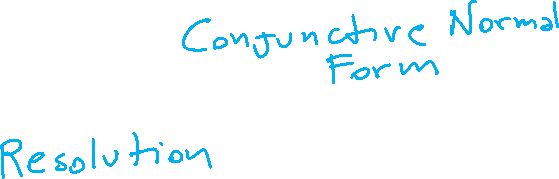 Conjunctive Normal
Form
Resolution